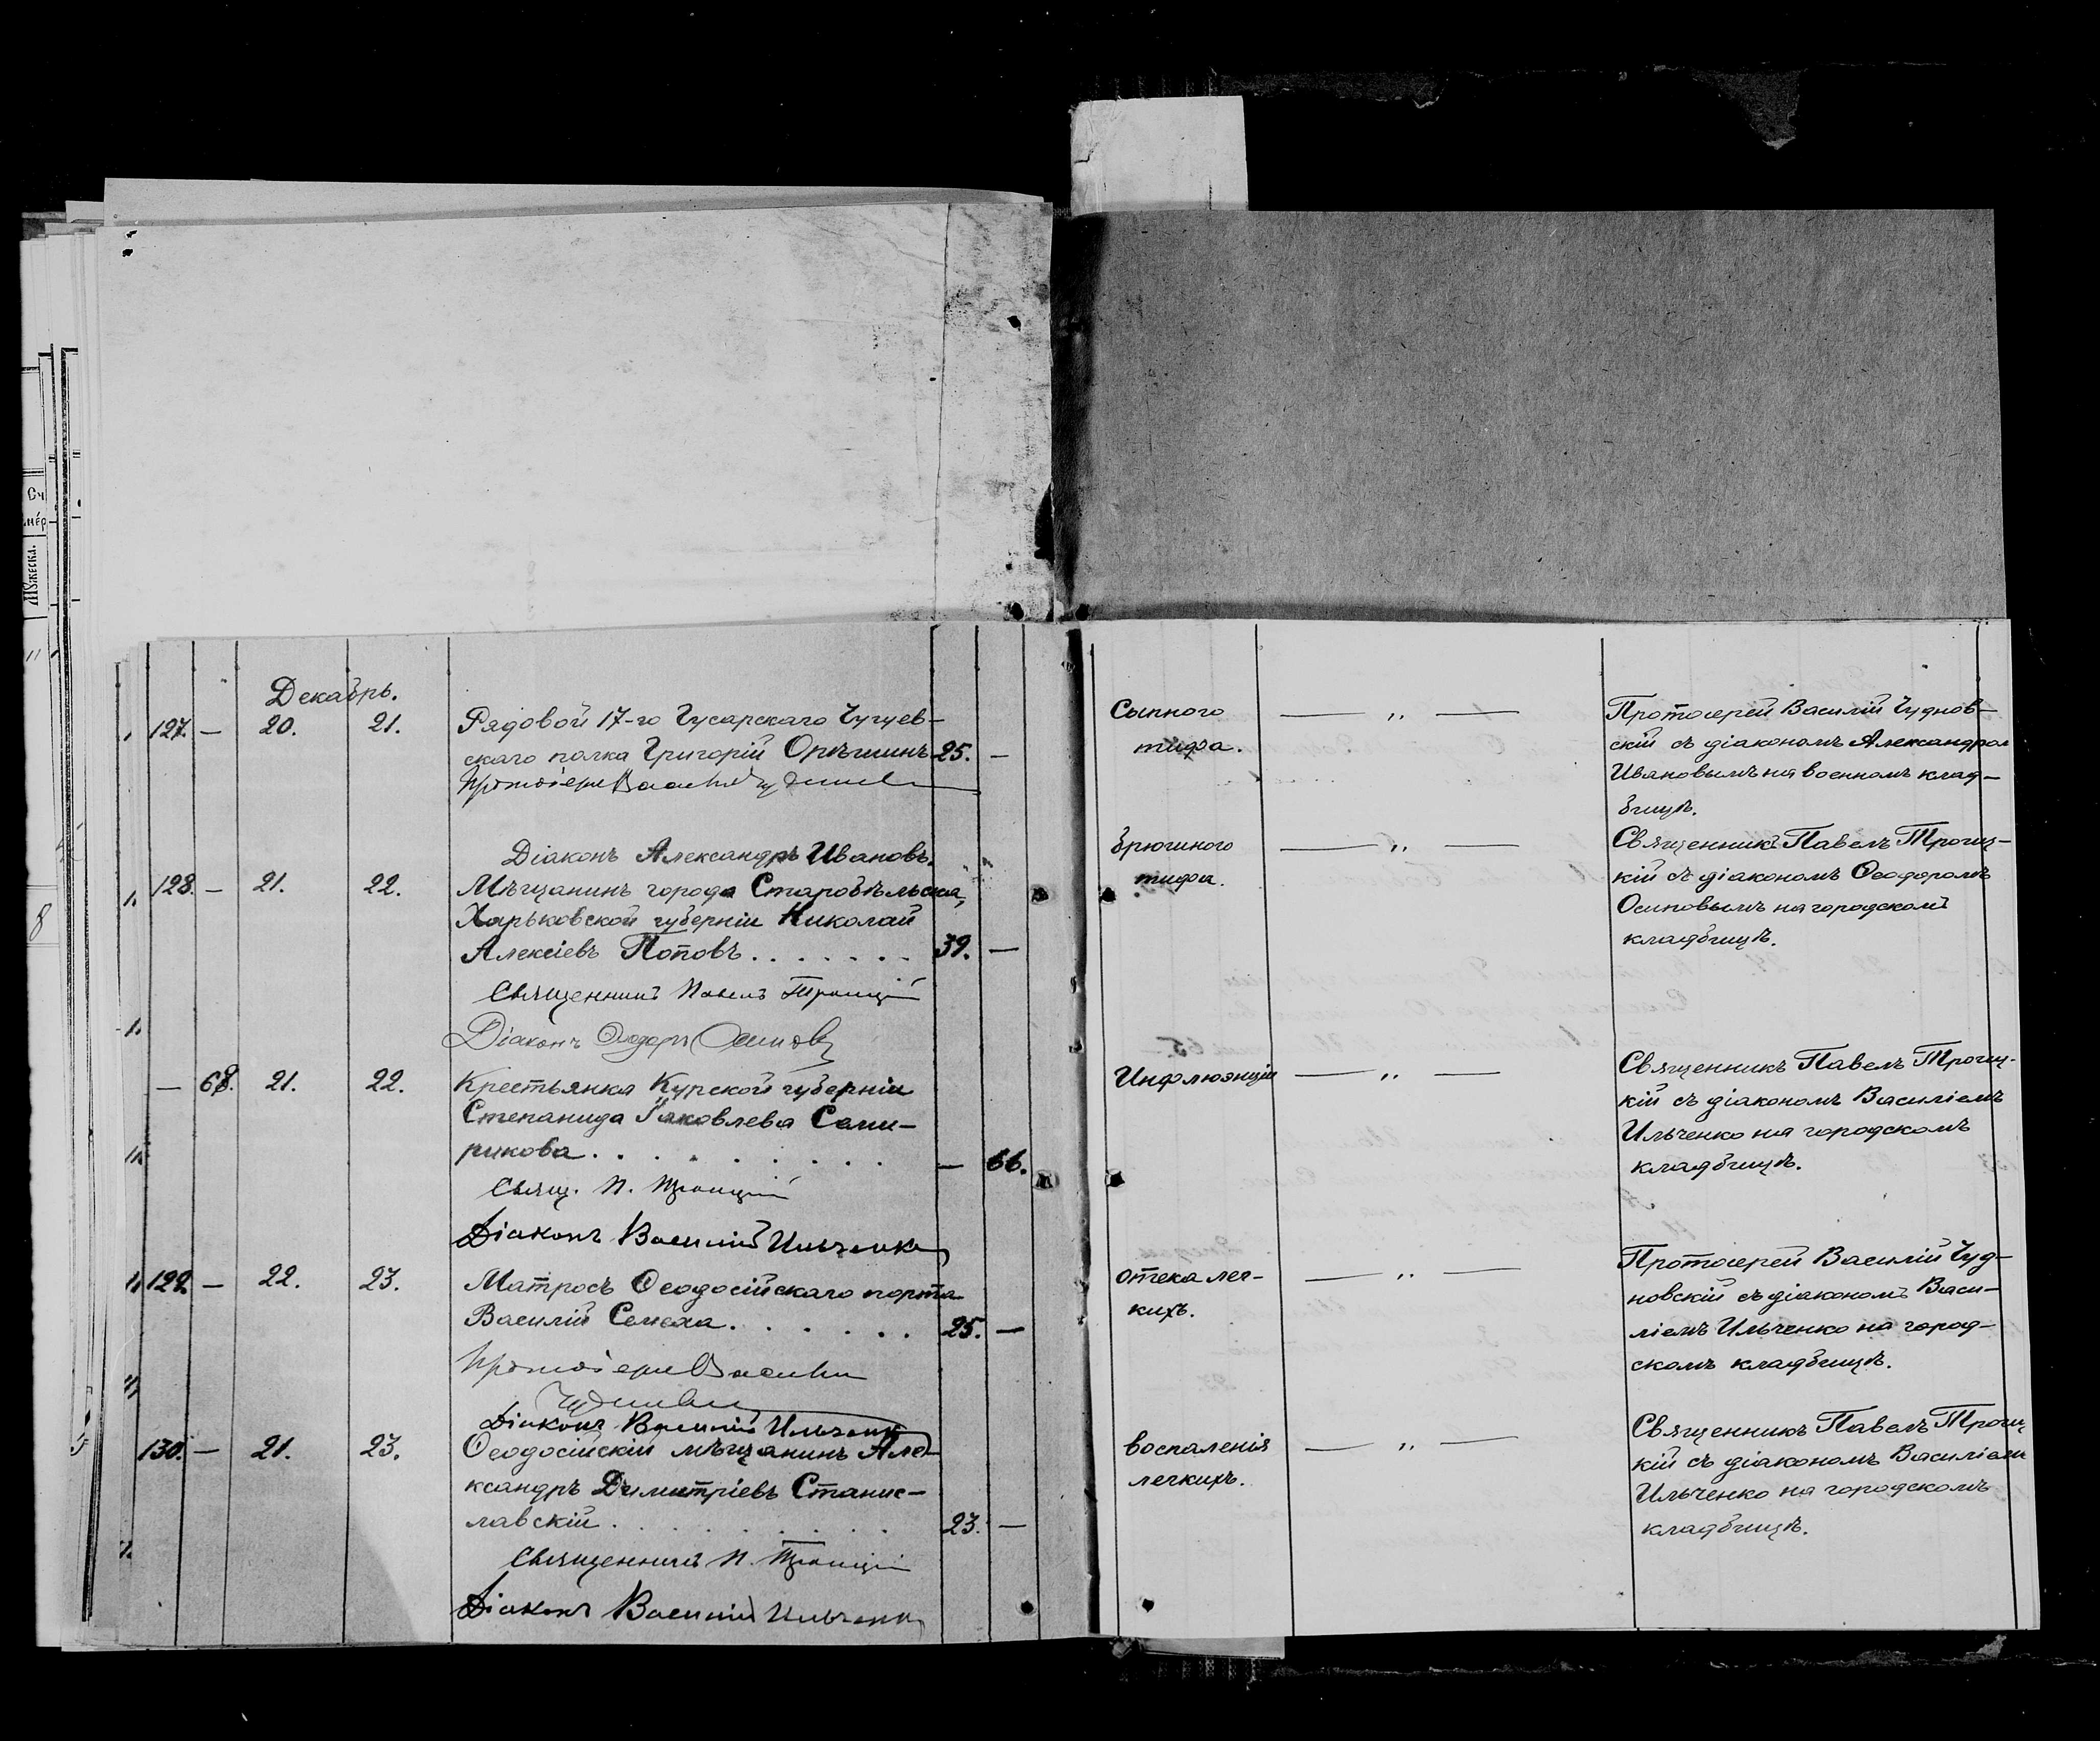 Сч
мер
Мужеска.
8
Декабрь.
127. — 20. 21. Рядовой 17-го Гусарскаго Чугуев-
скаго полка Григорій Орѣшинъ 25. —
Протоіерей Василій
Діаконъ Александръ Ивановъ.
128. — 21. 22. Мѣщанинъ города Старобѣльска,
Харьковской губерніи Николай
Алексіевъ Поповъ. . . . . . . 39. —
Священникъ Павелъ Троицкій
Діаконъ Ѳеодоръ Осиповъ
— 68. 21. 22. Крестьянка Курской губерніи
Степанида Яковлева Семи-
рикова. . . . . . . . — 66.
Свящ. П. Троицкій
Діаконъ Василій Ильченко
129. — 22. 23. Матросъ Ѳеодосійскаго порта
Василій Семеха. . . . . . 25. —
Протоіерей Василій
Чудновскій
Діаконъ Василій Ильченко
130. — 21. 23. Ѳеодосійскій мѣщанинъ Але-
ксандръ Димитріевъ Станис-
лавскій . . . . . . . . 23. —
Священникъ П. Троицкій
Діаконъ Василій Ильченко
Сыпного
тифа.
— „ —
Протоіерей Василій Чуднов-
скій съ діакономъ Александром
Ивановымъ на военномъ клад-
бищѣ.
брюшного
тифа.
— „ —
Священникъ Павелъ Троиц-
кій съ діакономъ Ѳеодоромъ
Осиповымъ на городскомъ
кладбищѣ.
Инфлюэнціи
— „ —
Священникъ Павелъ Троиц-
кій съ діакономъ Василіемъ
Ильченко на городскомъ
кладбищѣ.
отека лег-
кихъ.
— „ —
Протоіерей Василій Чуд-
новскій съ діакономъ Васи-
ліемъ Ильченко на город-
скомъ кладбищѣ.
воспаленія
легкихъ.
— „ —
Священникъ Павелъ Троиц
кій съ діакономъ Василіемъ
Ильченко на городскомъ
кладбищѣ.